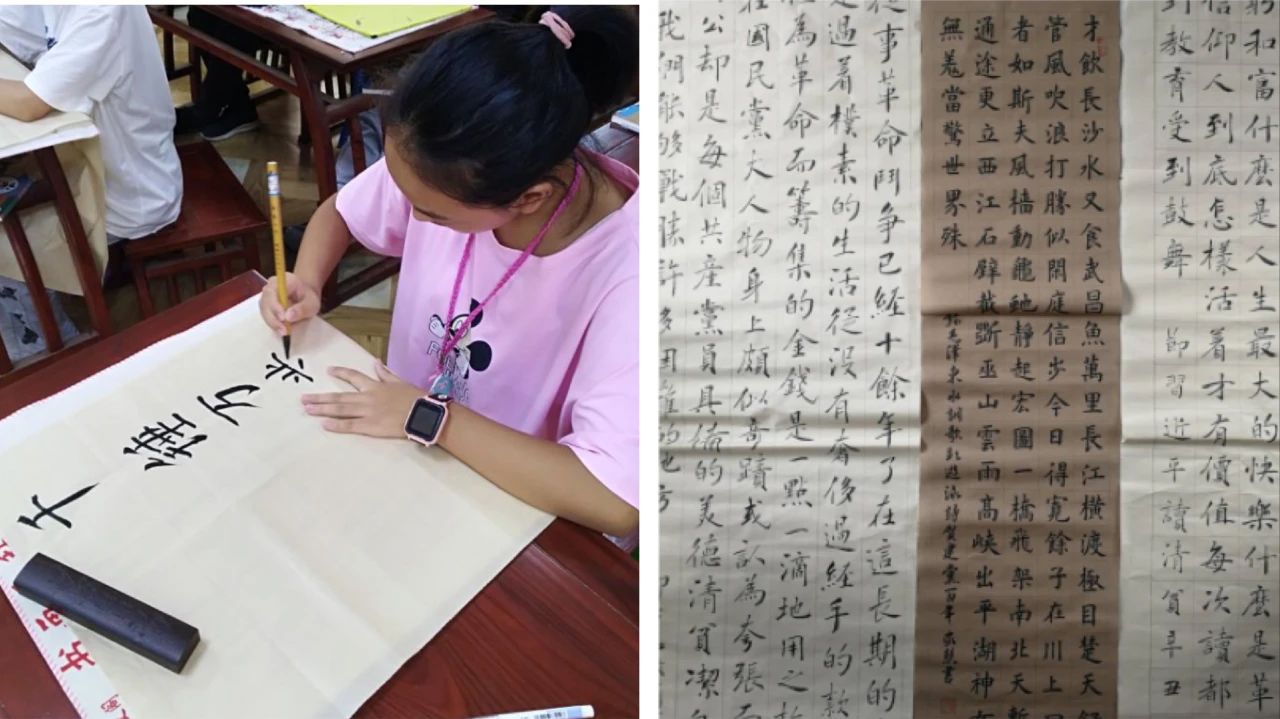 千锤万
穷和富什麼是人生最大的快樂什麼是革
信仰人到底怎樣活着才有價值每次讀都
到教育受到鼓舞 節習近平讀清貧辛丑
才飲長沙水又食武昌魚萬里長江橫渡極目楚天
管風吹浪打勝似閑庭信步今日得寬餘子在川上
者如斯夫風檣動龜蛇静起宏圖一橋飛架南北天
通途更立西江石壁截斷巫山雲雨高峽出平湖神
無恙當驚世界殊
毛澤東水調歌頭遊泳詩賀建黨百年
從事革命鬥争已經十餘年了在這長期的
過着樸素的生活從没有奢侈過經手的款
為革命而籌集的金錢是一點一滴地用之於
在國民黨大人物身上頗似奇蹟或認為夸張而
公却是每個共産黨員具備的美德清貧潔
我們能够戰勝許多困難的地方